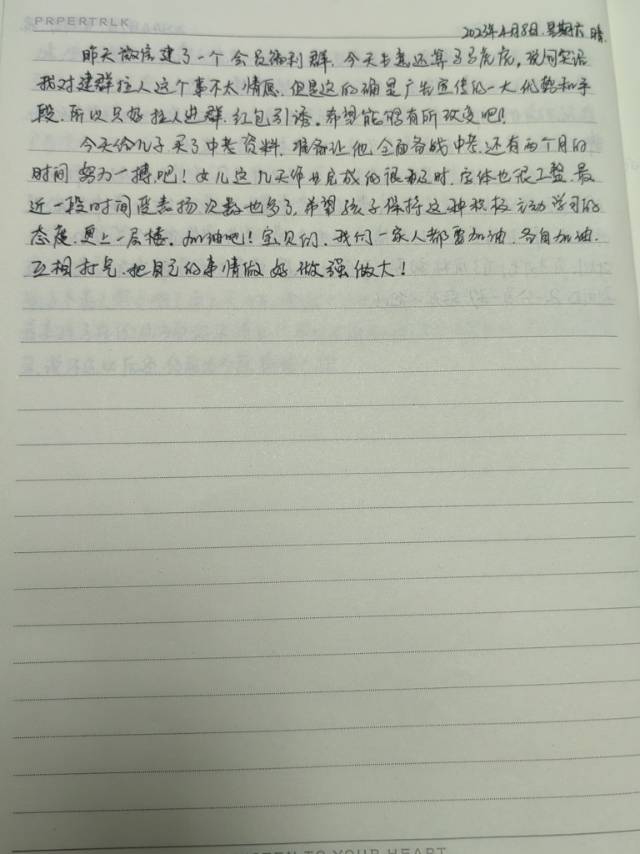 PRPERTRLK
2023年4月8日.星期六 晴.
昨天做完建了一个会员福利群.今天卡差还算马马虎虎,说句实话
我对建群拉人这个事不太情愿.但是这的确是广告宣传的一大优势和手
段.所以只好拉人进群.红包引诱。希望能够有所改变吧!
今天给儿子买了中考资料.准备让他全面备战中考.还有两个月的
时间努力一搏吧!女儿这几天作业完成的很及时.字体也很工整.最
近一段时间受表扬次数也多了.希望孩子保持这种积极主动学习的
态度.更上一层楼。加油吧!宝贝们.我们一家人都要加油.各自加油.
互相打气.把自己的事情做好做强做大!
LISTEN TO YOUR HEART